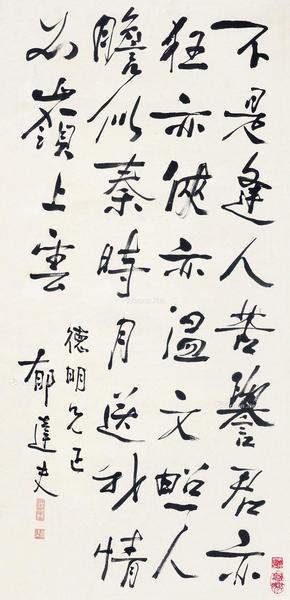 不是逢人苦譽君亦
狂亦俠亦溫文照人
膽似秦時月送我情
如嶺上雲
德明兄正
郁達夫